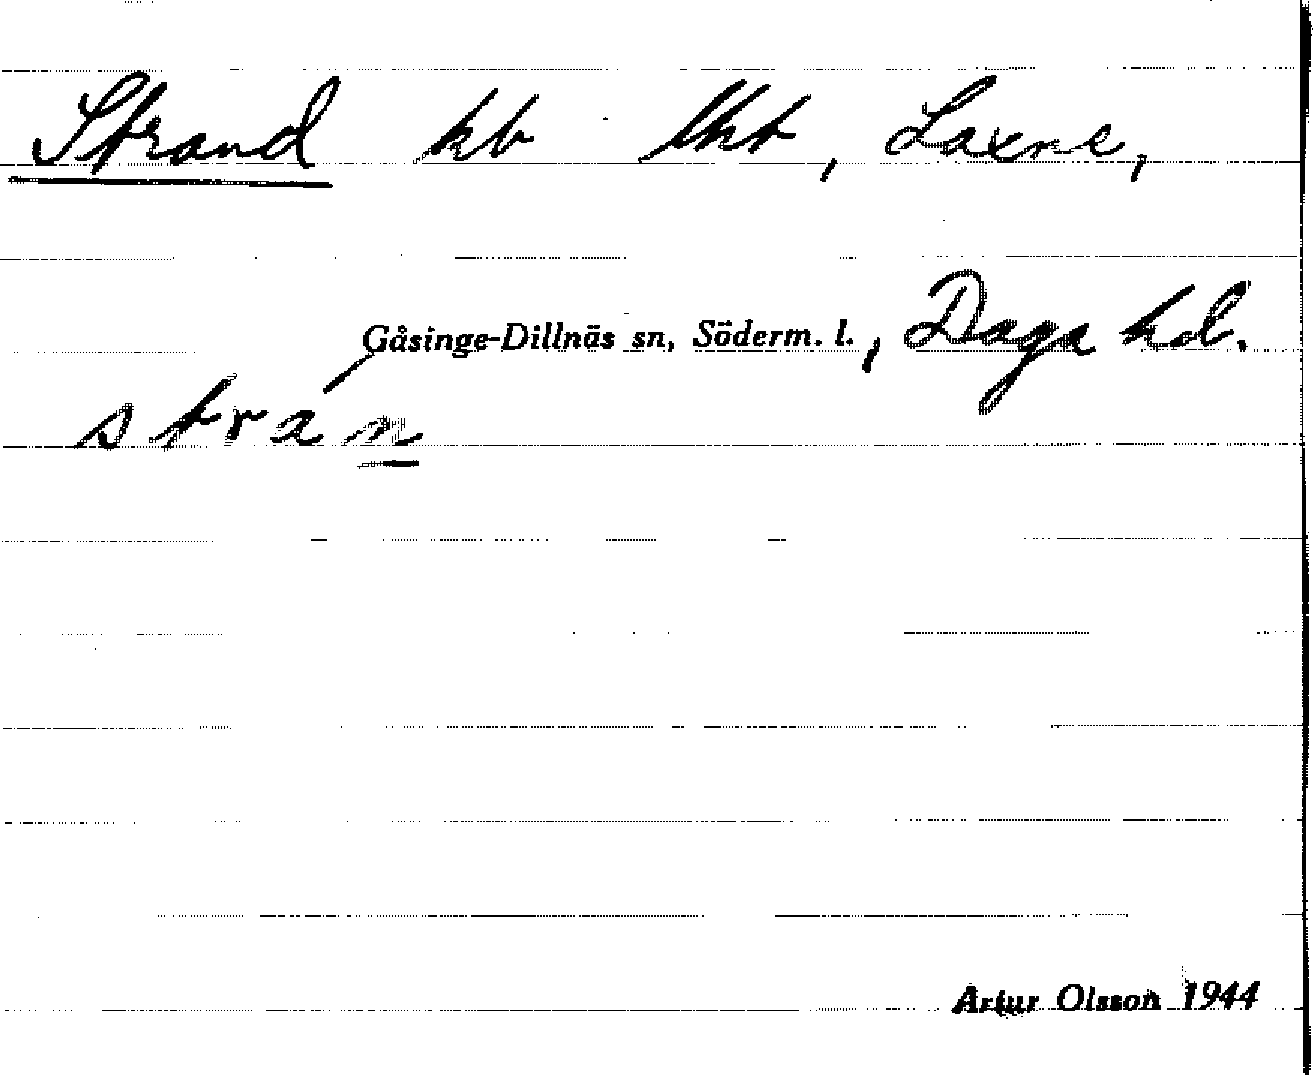 Strand kb lht, Laxne,
Gåsinge-Dillnäs sn, Söderm. l., Daga hd.
strán
Artur Olsson 1944